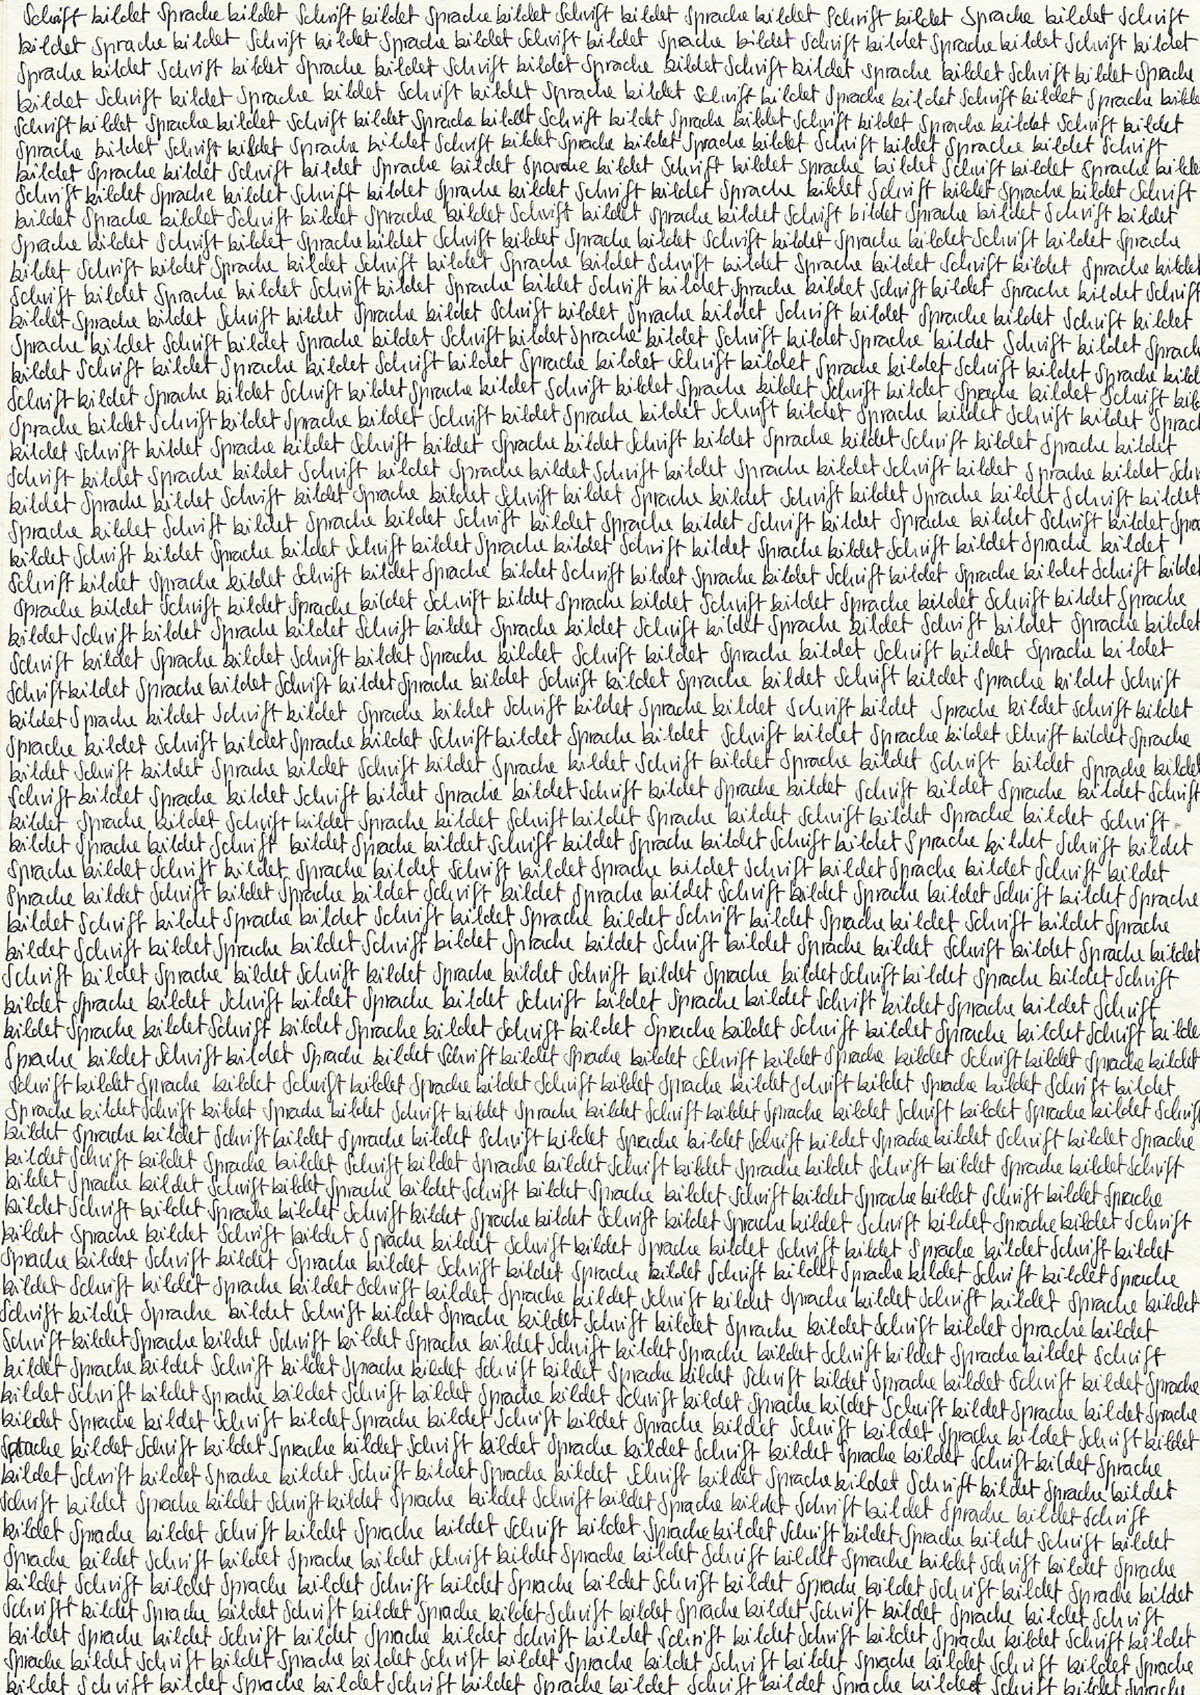 Schrift bildet Sprache bildet Schrift bildet Sprache bildet Schrift bildet Sprache bildet Schrift bildet Sprache bildet Schrift
bildet Sprache bildet Schrift bildet Sprache bildet Schrift bildet Sprache bildet Schrift bildet Sprache bildet Schrift bildet
Sprache bildet Schrift bildet Sprache bildet Schrift bildet Sprache bildet Schrift bildet Sprache bildet Schrift bildet Sprache
bildet Schrift bildet Sprache bildet Schrift bildet Sprache bildet Schrift bildet Sprache bildet Schrift bildet Sprache bilde
Schrift bildet Sprache bildet Schrift bildet Sprache bildet Schrift bildet Sprache bildet Schrift bildet Sprache bildet Schrift bildet
Sprache bildet Schrift bildet Sprache bildet Schrift bildet Sprache bildet Sprache bildet Schrift bildet Sprache bildet Schrift
bildet Sprache bildet Schrift bildet Sprache bildet Sprache bildet Schrift bildet Sprache bildet Schrift bildet Sprache bilde
Schrift bildet Sprache bildet Schrift bildet Sprache bildet Schrift bildet Sprache bildet Schrift bildet Sprache bildet Schrift
bildet Sprache bildet Schrift bildet Sprache bildet Schrift bildet Sprache bildet Schrift bildet Sprache bildet Schrift bildet
Sprache bildet Schrift bildet Sprache bildet Schrift bildet Sprache bildet Schrift bildet Sprache bildet Schrift bildet Sprache
bildet Schrift bildet Sprache bildet Schrift bildet Sprache bildet Schrift bildet Sprache bildet Schrift bildet Sprache bildet
Schrift bildet Sprache bildet Schrift bildet Sprache bildet Schrift bildet Sprache bildet Schrift bildet Sprache bildet Schrift
bildet Sprache bildet Schrift bildet Sprache bildet Schrift bildet Sprache bildet Schrift bildet Sprache bildet Schrift bildet
Sprache bildet Schrift bildet Sprache bildet Schrift bildet Sprache bildet Schrift bildet Sprache bildet Schrift bildet Sprach
bildet Schrift bildet Sprache bildet Schrift bildet Sprache bildet Schrift bildet Sprache bildet Schrift bildet Sprache bild
Schrift bildet Sprache bildet Schrift bildet Sprache bildet Schrift bildet Sprache bildet Schrift bildet Sprache bildet Schrift bil
Sprache bildet Schrift bildet Sprache bildet Schrift bildet Sprache bildet Schrift bildet Sprache bildet Schrift bildet Sprach
bildet Schrift bildet Sprache bildet Schrift bildet Sprache bildet Schrift bildet Sprache bildet Schrift bildet Sprache bildet
Schrift bildet Sprache bildet Schrift bildet Sprache bildet Schrift bildet Sprache bildet Schrift bildet Sprache bildet Schri
bildet Sprache bildet Schrift bildet Sprache bildet Schrift bildet Sprache bildet Schrift bildet Sprache bildet Schrift bildet
Sprache bildet Schrift bildet Sprache bildet Schrift bildet Sprache bildet Schrift bildet Sprache bildet Schrift bildet Spra
bildet Schrift bildet Sprache bildet Schrift bildet Sprache bildet Schrift bildet Sprache bildet Schrift bildet Sprache bildet
Schrift bildet Sprache bildet Schrift bildet Sprache bildet Schrift bildet Sprache bildet Schrift bildet Sprache bildet Schrift bildet
Sprache bildet Schrift bildet Sprache bildet Schrift bildet Sprache bildet Schrift bildet Sprache bildet Schrift bildet Sprache
bildet Schrift bildet Sprache bildet Schrift bildet Sprache bildet Schrift bildet Sprache bildet Schrift bildet Sprache bildet
Schrift bildet Sprache bildet Schrift bildet Sprache bildet Schrift bildet Sprache bildet Schrift bildet Sprache bildet
Schrift bildet Sprache bildet Schrift bildet Sprache bildet Schrift bildet Sprache bildet Schrift bildet Sprache bildet Schrift
bildet Sprache bildet Schrift bildet Sprache bildet Schrift bildet Sprache bildet Schrift bildet Sprache bildet Schrift bildet
Sprache bildet Schrift bildet Sprache bildet Schrift bildet Sprache bildet Schrift bildet Sprache bildet Schrift bildet Sprache
bildet Schrift bildet Sprache bildet Schrift bildet Sprache bildet Schrift bildet Sprache bildet Schrift bildet Sprache bildet
Schrift bildet Sprache bildet Schrift bildet Sprache bildet Schrift bildet Sprache bildet Schrift bildet Sprache bildet Schrift
bildet Sprache bildet Schrift bildet Sprache bildet Schrift bildet Sprache bildet Schrift bildet Sprache bildet Schrift
bildet Sprache bildet Schrift bildet Sprache bildet Schrift bildet Sprache bildet Schrift bildet Sprache bildet Schrift bildet
Sprache bildet Schrift bildet Sprache bildet Schrift bildet Sprache bildet Schrift bildet Sprache bildet Schrift bildet
Sprache bildet Schrift bildet Sprache bildet Schrift bildet Sprache bildet Schrift bildet Sprache bildet Schrift bildet Sprache
bildet Schrift bildet Sprache bildet Schrift bildet Sprache bildet Schrift bildet Sprache bildet Schrift bildet Sprache
bildet Schrift bildet Sprache bildet Schrift bildet Sprache bildet Schrift bildet Sprache bildet Schrift bildet Sprache bildet
Schrift bildet Sprache bildet Schrift bildet Sprache bildet Schrift bildet Sprache bildet Schrift bildet Sprache bildet Schrift
bildet Sprache bildet Schrift bildet Sprache bildet Schrift bildet Sprache bildet Schrift bildet Sprache bildet Schrift
bildet Sprache bildet Schrift bildet Sprache bildet Schrift bildet Sprache bildet Schrift bildet Sprache bildet Schrift bilde
Sprache bildet Schrift bildet Sprache bildet Schrift bildet Sprache bildet Schrift bildet Sprache bildet Schrift bildet Sprache bildet
Schrift bildet Sprache bildet Schrift bildet Sprache bildet Schrift bildet Sprache bildet Schrift bildet Sprache bildet Schrift bildet
Sprache bildet Schrift bildet Sprache bildet Schrift bildet Sprache bildet Schrift bildet Sprache bildet Schrift bildet Sprache bildet Schrift
bildet Sprache bildet Schrift bildet Sprache bildet Schrift bildet Sprache bildet Schrift bildet Sprache bildet Schrift bildet Sprache
bildet Schrift bildet Sprache bildet Schrift bildet Sprache bildet Schrift bildet Sprache bildet Schrift bildet Sprache bildet Schrift
bildet Sprache bildet Schrift bildet Sprache bildet Schrift bildet Sprache bildet Schrift bildet Sprache bildet Schrift bildet Sprache
bildet Schrift bildet Sprache bildet Schrift bildet Sprache bildet Schrift bildet Sprache bildet Schrift bildet Sprache bildet Schrift
bildet Sprache bildet Schrift bildet Sprache bildet Schrift bildet Sprache bildet Schrift bildet Sprache bildet Schrift bildet
Sprache bildet Schrift bildet Sprache bildet Schrift bildet Sprache bildet Schrift bildet Sprache bildet Schrift bildet Sprache
bildet Schrift bildet Sprache bildet Schrift bildet Sprache bildet Schrift bildet Sprache bildet Schrift bildet Sprache bildet
Schrift bildet Sprache bildet Schrift bildet Sprache bildet Schrift bildet Sprache bildet Schrift bildet Sprache bildet
Schrift bildet Sprache bildet Schrift bildet Sprache bildet Schrift bildet Sprache bildet Schrift bildet Sprache bildet Schrift
bildet Sprache bildet Schrift bildet Sprache bildet Schrift bildet Sprache bildet Schrift bildet Sprache bildet Schrift bildet Sprache
bildet Schrift bildet Sprache bildet Schrift bildet Sprache bildet Schrift bildet Sprache bildet Schrift bildet Sprache bildet Sprache
bildet Sprache bildet Schrift bildet Sprache bildet Schrift bildet Sprache bildet Schrift bildet Sprache bildet Schrift bildet
Sprache bildet Schrift bildet Sprache bildet Schrift bildet Sprache bildet Schrift bildet Sprache bildet Schrift bildet Sprache
bildet Schrift bildet Sprache bildet Schrift bildet Sprache bildet Schrift bildet Sprache bildet Schrift bildet Sprache bildet
Schrift bildet Sprache bildet Schrift bildet Sprache bildet Schrift bildet Sprache bildet Schrift bildet Sprache bildet Schrift
bildet Sprache bildet Schrift bildet Sprache bildet Schrift bildet Sprache bildet Schrift bildet Sprache bildet Schrift bildet
Sprache bildet Schrift bildet Sprache bildet Schrift bildet Sprache bildet Schrift bildet Sprache bildet Schrift bildet Sprache
bildet Schrift bildet Sprache bildet Schrift bildet Sprache bildet Schrift bildet Sprache bildet Schrift bildet Sprache bildet
Schrift bildet Sprache bildet Schrift bildet Sprache bildet Schrift bildet Sprache bildet Schrift bildet Sprache bildet Schrift
bildet Sprache bildet Schrift bildet Sprache bildet Schrift bildet Schrift bildet Schrift bildet Sprache bildet Schrift bildet
Sprache bildet Schrift bildet Sprache bildet Schrift bildet Sprache bildet Schrift bildet Sprache bildet Schrift bildet Sprache
bildet Schrift bildet Sprache bildet Schrift bildet Sprache bildet Schrift bildet Sprache bildet Schrift bildet Sprache